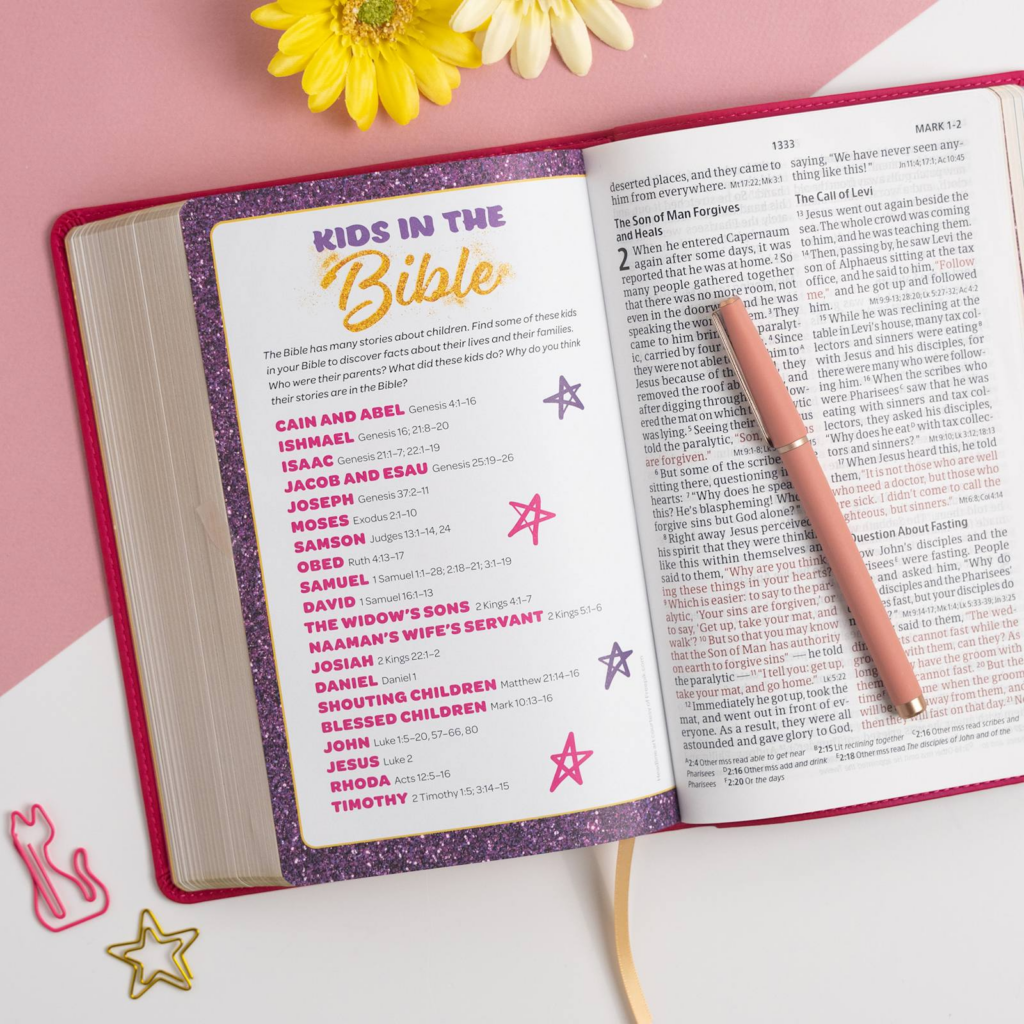 KIDS IN THE
Bible
The Bible has many stories about children. Find some of these kids
in your Bible to discover facts about their lives and their families.
Who were their parents? What did these kids do? Why do you think
their stories are in the Bible?
CAIN AND ABEL Genesis 4:1–16
ISHMAEL Genesis 16; 21:8–20
ISAAC Genesis 21:1–7; 22:1–19
JACOB AND ESAU Genesis 25:19–26
JOSEPH Genesis 37:2–11
MOSES Exodus 2:1–10
SAMSON Judges 13:1–14, 24
OBED Ruth 4:13–17
SAMUEL 1 Samuel 1:1–28; 2:18–21; 3:1–19
DAVID 1 Samuel 16:1–13
THE WIDOW'S SONS 2 Kings 4:1–7
NAAMAN'S WIFE'S SERVANT 2 Kings 5:1–6
JOSIAH 2 Kings 22:1–2
DANIEL Daniel 1
SHOUTING CHILDREN Matthew 21:14–16
BLESSED CHILDREN Mark 10:13–16
JOHN Luke 1:5–20, 57–66, 80
JESUS Luke 2
RHODA Acts 12:5–16
TIMOTHY 2 Timothy 1:5; 3:14–15
1333
MARK 1–2
deserted places, and they came to
him from everywhere. Mt 17:22; Mk 3:1
The Son of Man Forgives
and Heals
2 When he entered Capernaum
again after some days, it was
reported that he was at home. 2 So
many people gathered together
that there was no more room, not
even in the doorw and he was
speaking the wor em. 3 They
came to him brin paralyt-
ic, carried by four 4 Since
they were not able to him to A
Jesus because of th d, they
removed the roof ab and
after digging through low-
ered the mat on which lytic
was lying. 5 Seeing their
told the paralytic, "Son,
are forgiven." Mt 9:1-8; Lk
6 But some of the scribe
sitting there, questioning i
hearts: 7 "Why does he spea
this? He's blaspheming! Wh
forgive sins but God alone?"
8 Right away Jesus perceived
his spirit that they were thinki
like this within themselves an
said to them, "Why are you think
ing these things in your hearts?
9 Which is easier: to say to the par
lytic, 'Your sins are forgiven,' or
to say, 'Get up, take your mat, and
walk'? 10 But so that you may know
that the Son of Man has authority
on earth to forgive sins" — he told
the paralytic — 11 "I tell you: get up,
take your mat, and go home." Lk 5:22
12 Immediately he got up, took the
mat, and went out in front of ev-
eryone. As a result, they were all
astounded and gave glory to God,
saying, "We have never seen any-
thing like this!" Jn 11:4; 17:1; Ac 10:45
The Call of Levi
13 Jesus went out again beside the
sea. The whole crowd was coming
to him, and he was teaching them.
14 Then, passing by, he saw Levi the
son of Alphaeus sitting at the tax
office, and he said to him, "Follow
me," and he got up and followed
him. Mt 9:9-13; 28:20; Lk 5:27-32; Ac 4:2
15 While he was reclining at the
table in Levi's house, many tax col-
lectors and sinners were eating B
with Jesus and his disciples, for
there were many who were follow-
ing him. 16 When the scribes who
were Pharisees C saw that he was
eating with sinners and tax col-
lectors, they asked his disciples,
"Why does he eat D with tax collec-
tors and sinners?" Mt 9:10; Lk 3:12; 18:13
17 When Jesus heard this, he told
them, "It is not those who are well
who need a doctor, but those who
re sick. I didn't come to call the
ghteous, but sinners." Mt 6:8; Col 4:14
Question About Fasting
ow John's disciples and the
risees E were fasting. People
and asked him, "Why do
disciples and the Pharisees'
es fast, but your disciples do
" Mt 9:14-17; Mk 1:4; Lk 5:33-39; Jn 3:25
s said to them, "The wed-
ts cannot fast while the
with them, can they? As
y have the groom with
annot fast. 20 But the
me when the groom
way from them, and
then they will fast on that day. 21 No
A 2:4 Other mss read able to get near B 2:15 Lit reclining together C 2:16 Other mss read scribes and
Pharisees D 2:16 Other mss add and drink E 2:18 Other mss read The disciples of John and of the
Pharisees F 2:20 Or the days